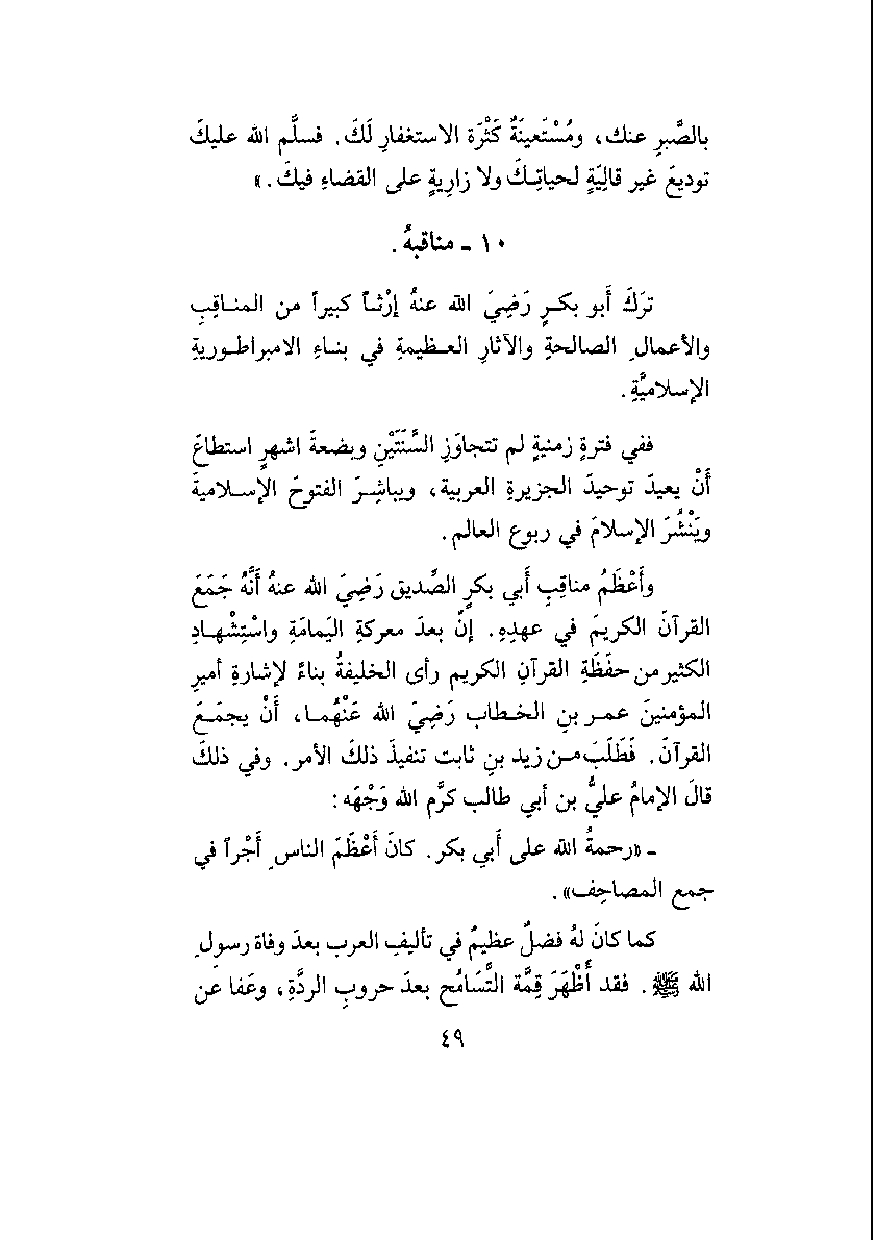 بالصَّبرِ عنك ، ومُسْتَعينَةٌ كَثْرَة الاستغفارِ لَكَ . فسلَّم الله عليكَ
توديعَ غير قالِيَةٍ لحياتِكَ ولا زارِيةٍ على القضاءِ فيكَ . »
١٠ - مناقبهُ .
ترَكَ أَبو بكرٍ رَضِيَ الله عنهُ إرْثاً كبيراً من المناقِبِ
والأعمالِ الصالحةِ والآثارِ العظيمةِ في بناءِ الامبراطوريةِ
الإسلاميَّةِ .
ففي فترةٍ زمنيةٍ لم تتجاوَزِ السَّنَتَيْنِ وبضعةَ اشهرٍ استطاعَ
أَنْ يعيدَ توحيدَ الجزيرةِ العربية ، ويباشِرَ الفتوحَ الإسلاميةَ
ويَنْشُرَ الإسلامَ في ربوع العالم .
وأَعْظَمُ مناقِبِ أَبي بكرٍ الصِّديق رَضِيَ الله عنهُ أَنَّهُ جَمَعَ
القرآنَ الكريمَ في عهدِهِ . إنّ بعدَ معركةِ اليَمامَةِ واسْتِشْهادِ
الكثير من حفَظَةِ القرآنِ الكريم رأى الخليفةُ بناءً لإشارةِ أميرِ
المؤمنينَ عمر بنِ الخطاب رَضِيَ الله عَنْهُما ، أَنْ يجمَعَ
القرآنَ . فَطَلَبَ من زيد بنِ ثابت تنفيذَ ذلكَ الأمر . وفي ذلكَ
قالَ الإمامُ عليُّ بن أبي طالب كرَّم الله وَجْهَه :
- « رحمةُ الله على أَبي بكر . كانَ أَعْظَمَ الناسِ أَجْراً في
جمع المصاحِف » .
كما كانَ لهُ فضلٌ عظيمٌ في تأليفِ العرب بعدَ وفاة رسولِ
الله ﷺ . فقد أَظْهَرَ قِمَّة التَّسَامُح بعدَ حروبِ الردَّةِ ، وعَفا عن
٤٩